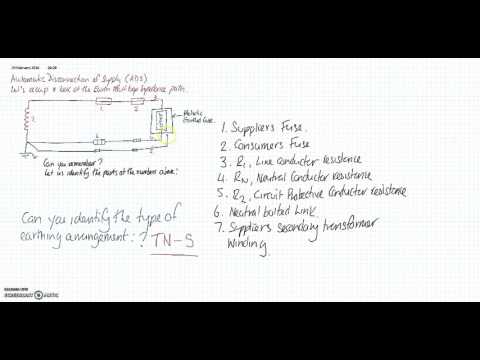 Automatic Disconnection of Supply (ADS)
Let's recap & look at the Earth
path.
1
2
3
7
Metallic
6
4
5
Can you remember?
Let us identify the parts of the numbers above:
Can you identify the type of
earthing arrangement:?
TN-S
1. Suppliers Fuse.
2. Consumers Fuse
3. R1, Line Conductor resistance
4. RN, Neutral Conductor resistance.
5. R2, Circuit Protective Conductor resistance
6. Neutral bolted Link
7. Suppliers secondary transformer
Winding.